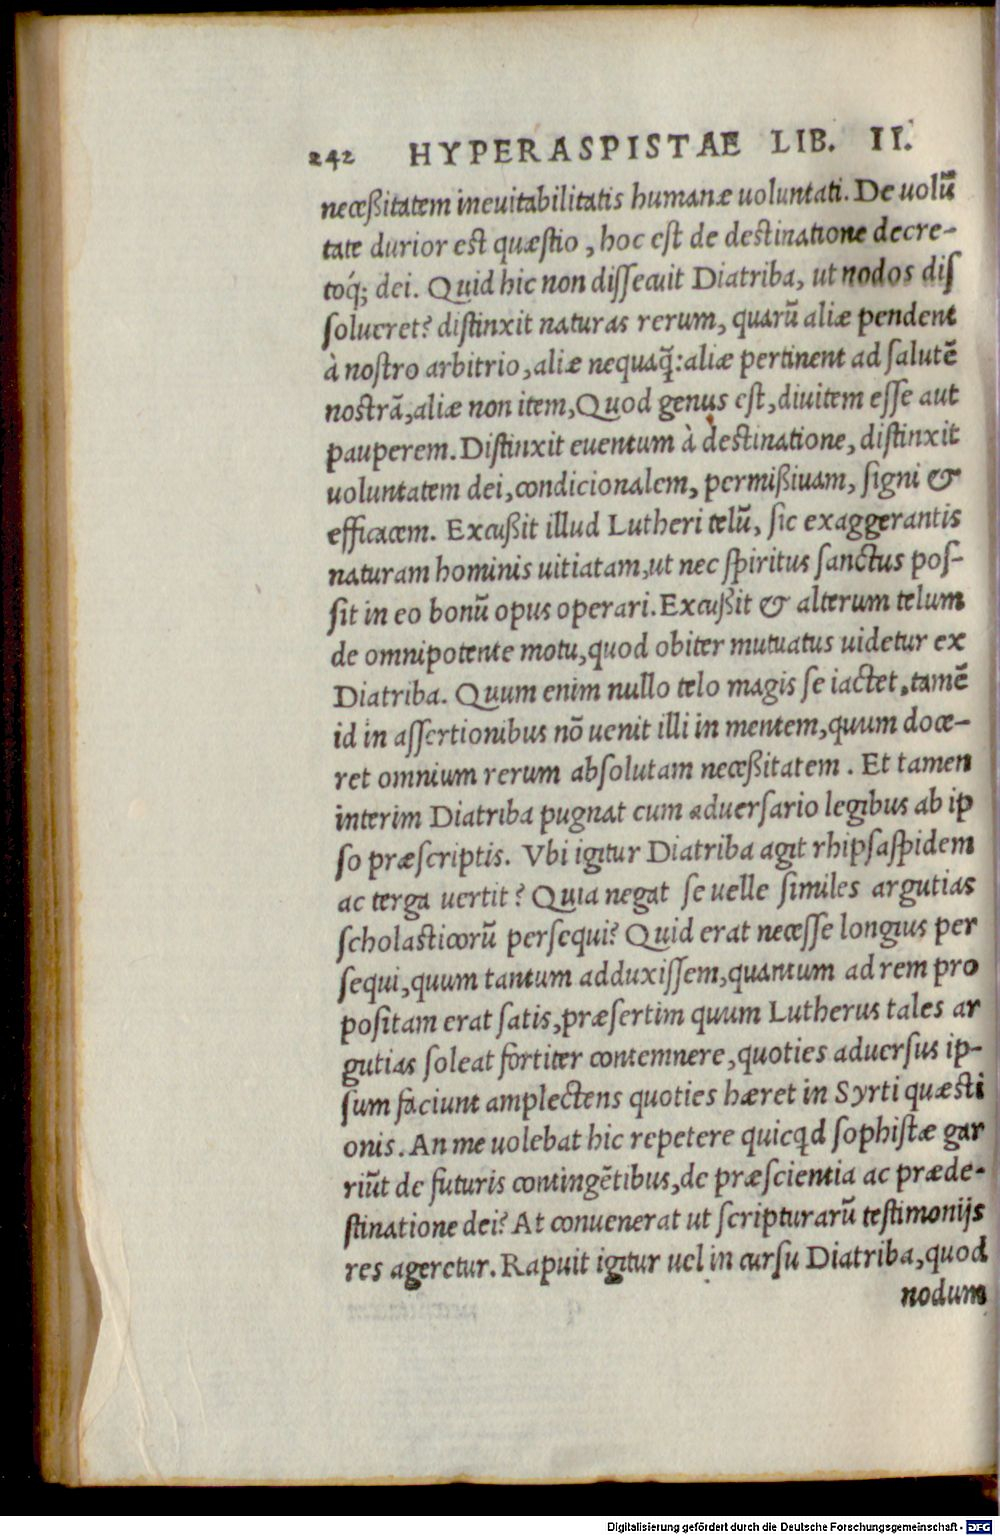 242 HYPERASPISTAE LIB. II.
neceßitatem ineuitabilitatis humanæ uoluntati. De uolũ
tate durior est quæstio, hoc est de destinatione decre-
toq́; dei. Quid hic non dissecuit Diatriba, ut nodos dis
solueret? distinxit naturas rerum, quarũ aliæ pendent
à nostro arbitrio, aliæ nequaq̃: aliæ pertinent ad salutẽ
nostrã, aliæ non item, Quod genus est, diuitem esse aut
pauperem. Distinxit euentum à destinatione, distinxit
uoluntatem dei, condicionalem, permißiuam, signi &
efficacem. Excußit illud Lutheri telũ, sic exaggerantis
naturam hominis uitiatam, ut nec spiritus sanctus pos-
sit in eo bonũ opus operari. Excußit & alterum telum
de omnipotente motu, quod obiter mutuatus uidetur ex
Diatriba. Quum enim nullo telo magis se iactet, tamẽ
id in assertionibus nõ uenit illi in mentem, quum doce-
ret omnium rerum absolutam neceßitatem. Et tamen
interim Diatriba pugnat cum aduersario legibus ab ip
so præscriptis. Vbi igitur Diatriba agit rhipsaspidem
ac terga uertit? Quia negat se uelle similes argutias
scholasticorũ persequi? Quid erat necesse longius per
sequi, quum tantum adduxissem, quantum ad rem pro
positam erat satis, præsertim quum Lutherus tales ar
gutias soleat fortiter contemnere, quoties aduersus ip-
sum faciunt amplectens quoties hæret in Syrti quæsti
onis. An me uolebat hic repetere quicq̣d sophistæ gar
riũt de futuris contingẽtibus, de præscientia ac præde-
stinatione dei? At conuenerat ut scripturarũ testimonijs
res ageretur. Rapuit igitur uel in cursu Diatriba, quod
nodum
Digitalisierung gefördert durch die Deutsche Forschungsgemeinschaft - DFG